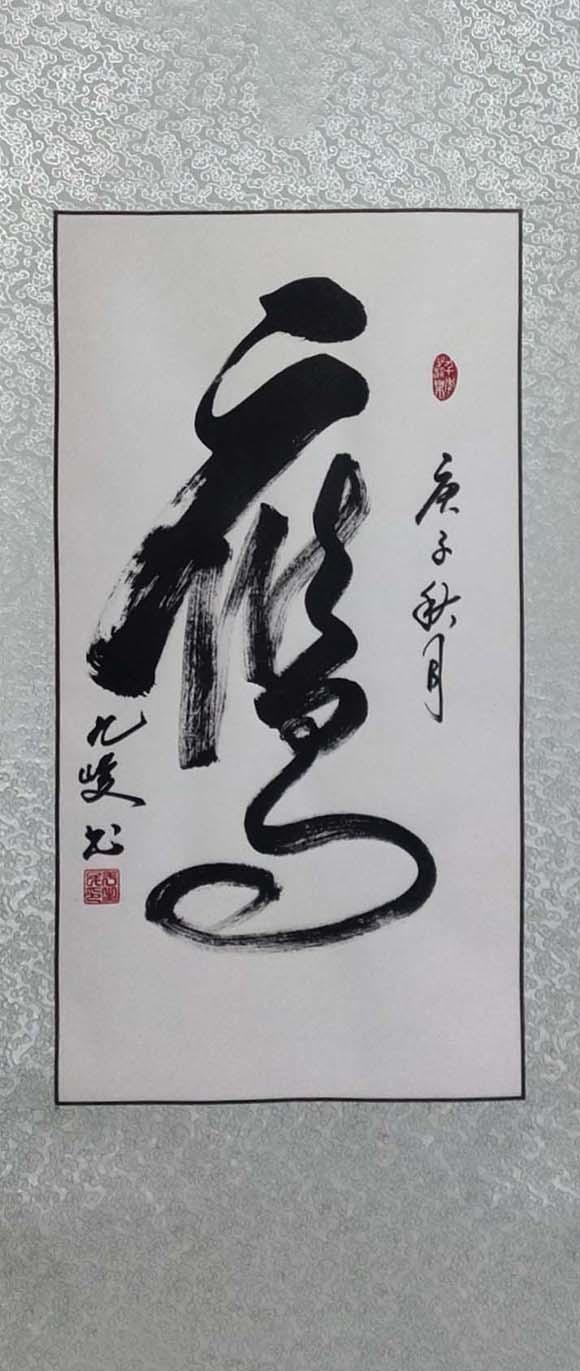 庚子秋月
鹰
九峻书